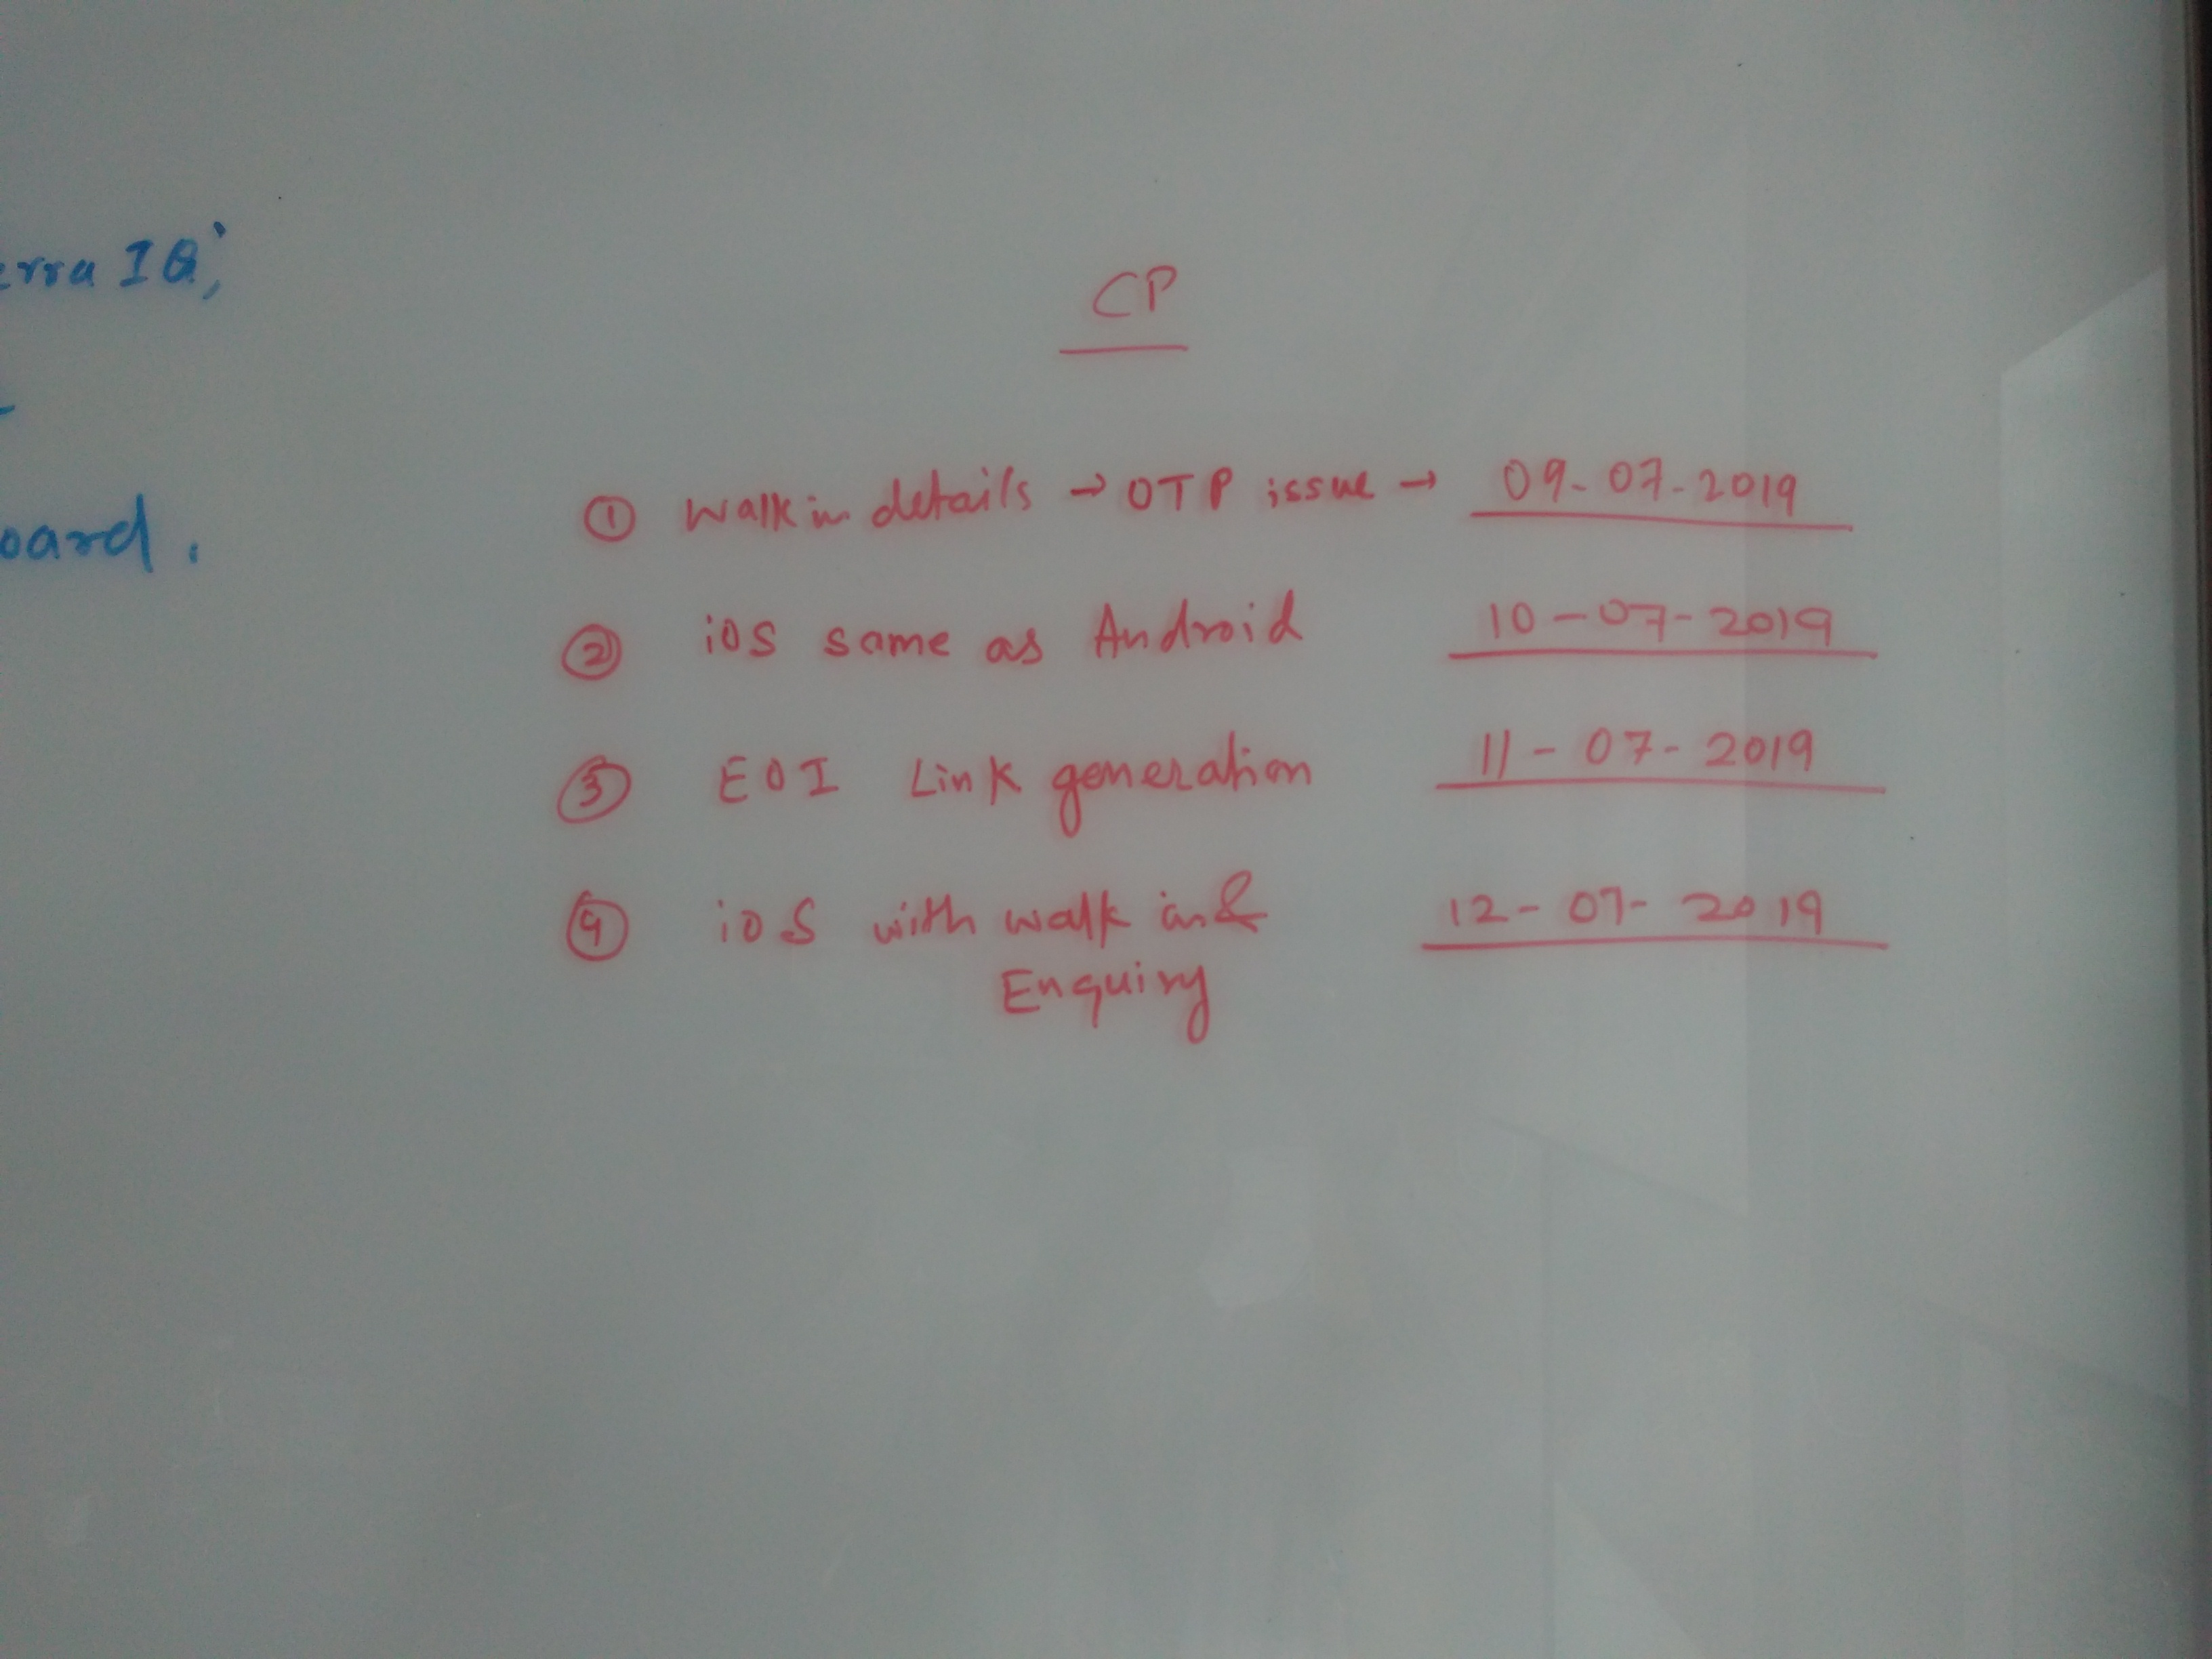 IQ,
CP
① Walk in details → OTP issue → 09-07-2019
② iOS same as Android 10-07-2019
board.
③ EOI Link generation 11-07-2019
④ iOS with walk in &
Enquiry
12-07-2019